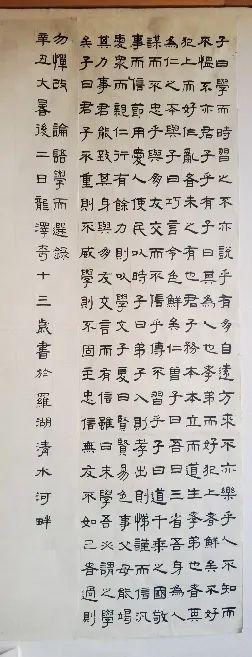 子曰學而時習之不亦說乎有朋自遠方來不亦樂乎人不知而
不慍不亦君子乎有子曰其為人也孝弟而好犯上者鮮矣不好
犯上而好作亂者未之有也君子務本本立而道生孝弟也者其
為仁之本與子曰巧言令色鮮矣仁曾子曰吾日三省吾身為人
謀而不忠乎與朋友交而不信乎傳不習乎子曰道千乘之國敬
事而信節用而愛人使民以時子曰弟子入則孝出則悌謹而信汎
愛衆而親仁行有餘力則以學文子夏曰賢賢易色事父母能竭
其力事君能致其身與朋友交言而有信雖曰未學吾必謂之學
矣子曰君子不重則不威學則不固主忠信無友不如己者過則
勿憚改 論語學而選錄
辛丑大暑後二日龍澤奇十三歲書於羅湖清水河畔